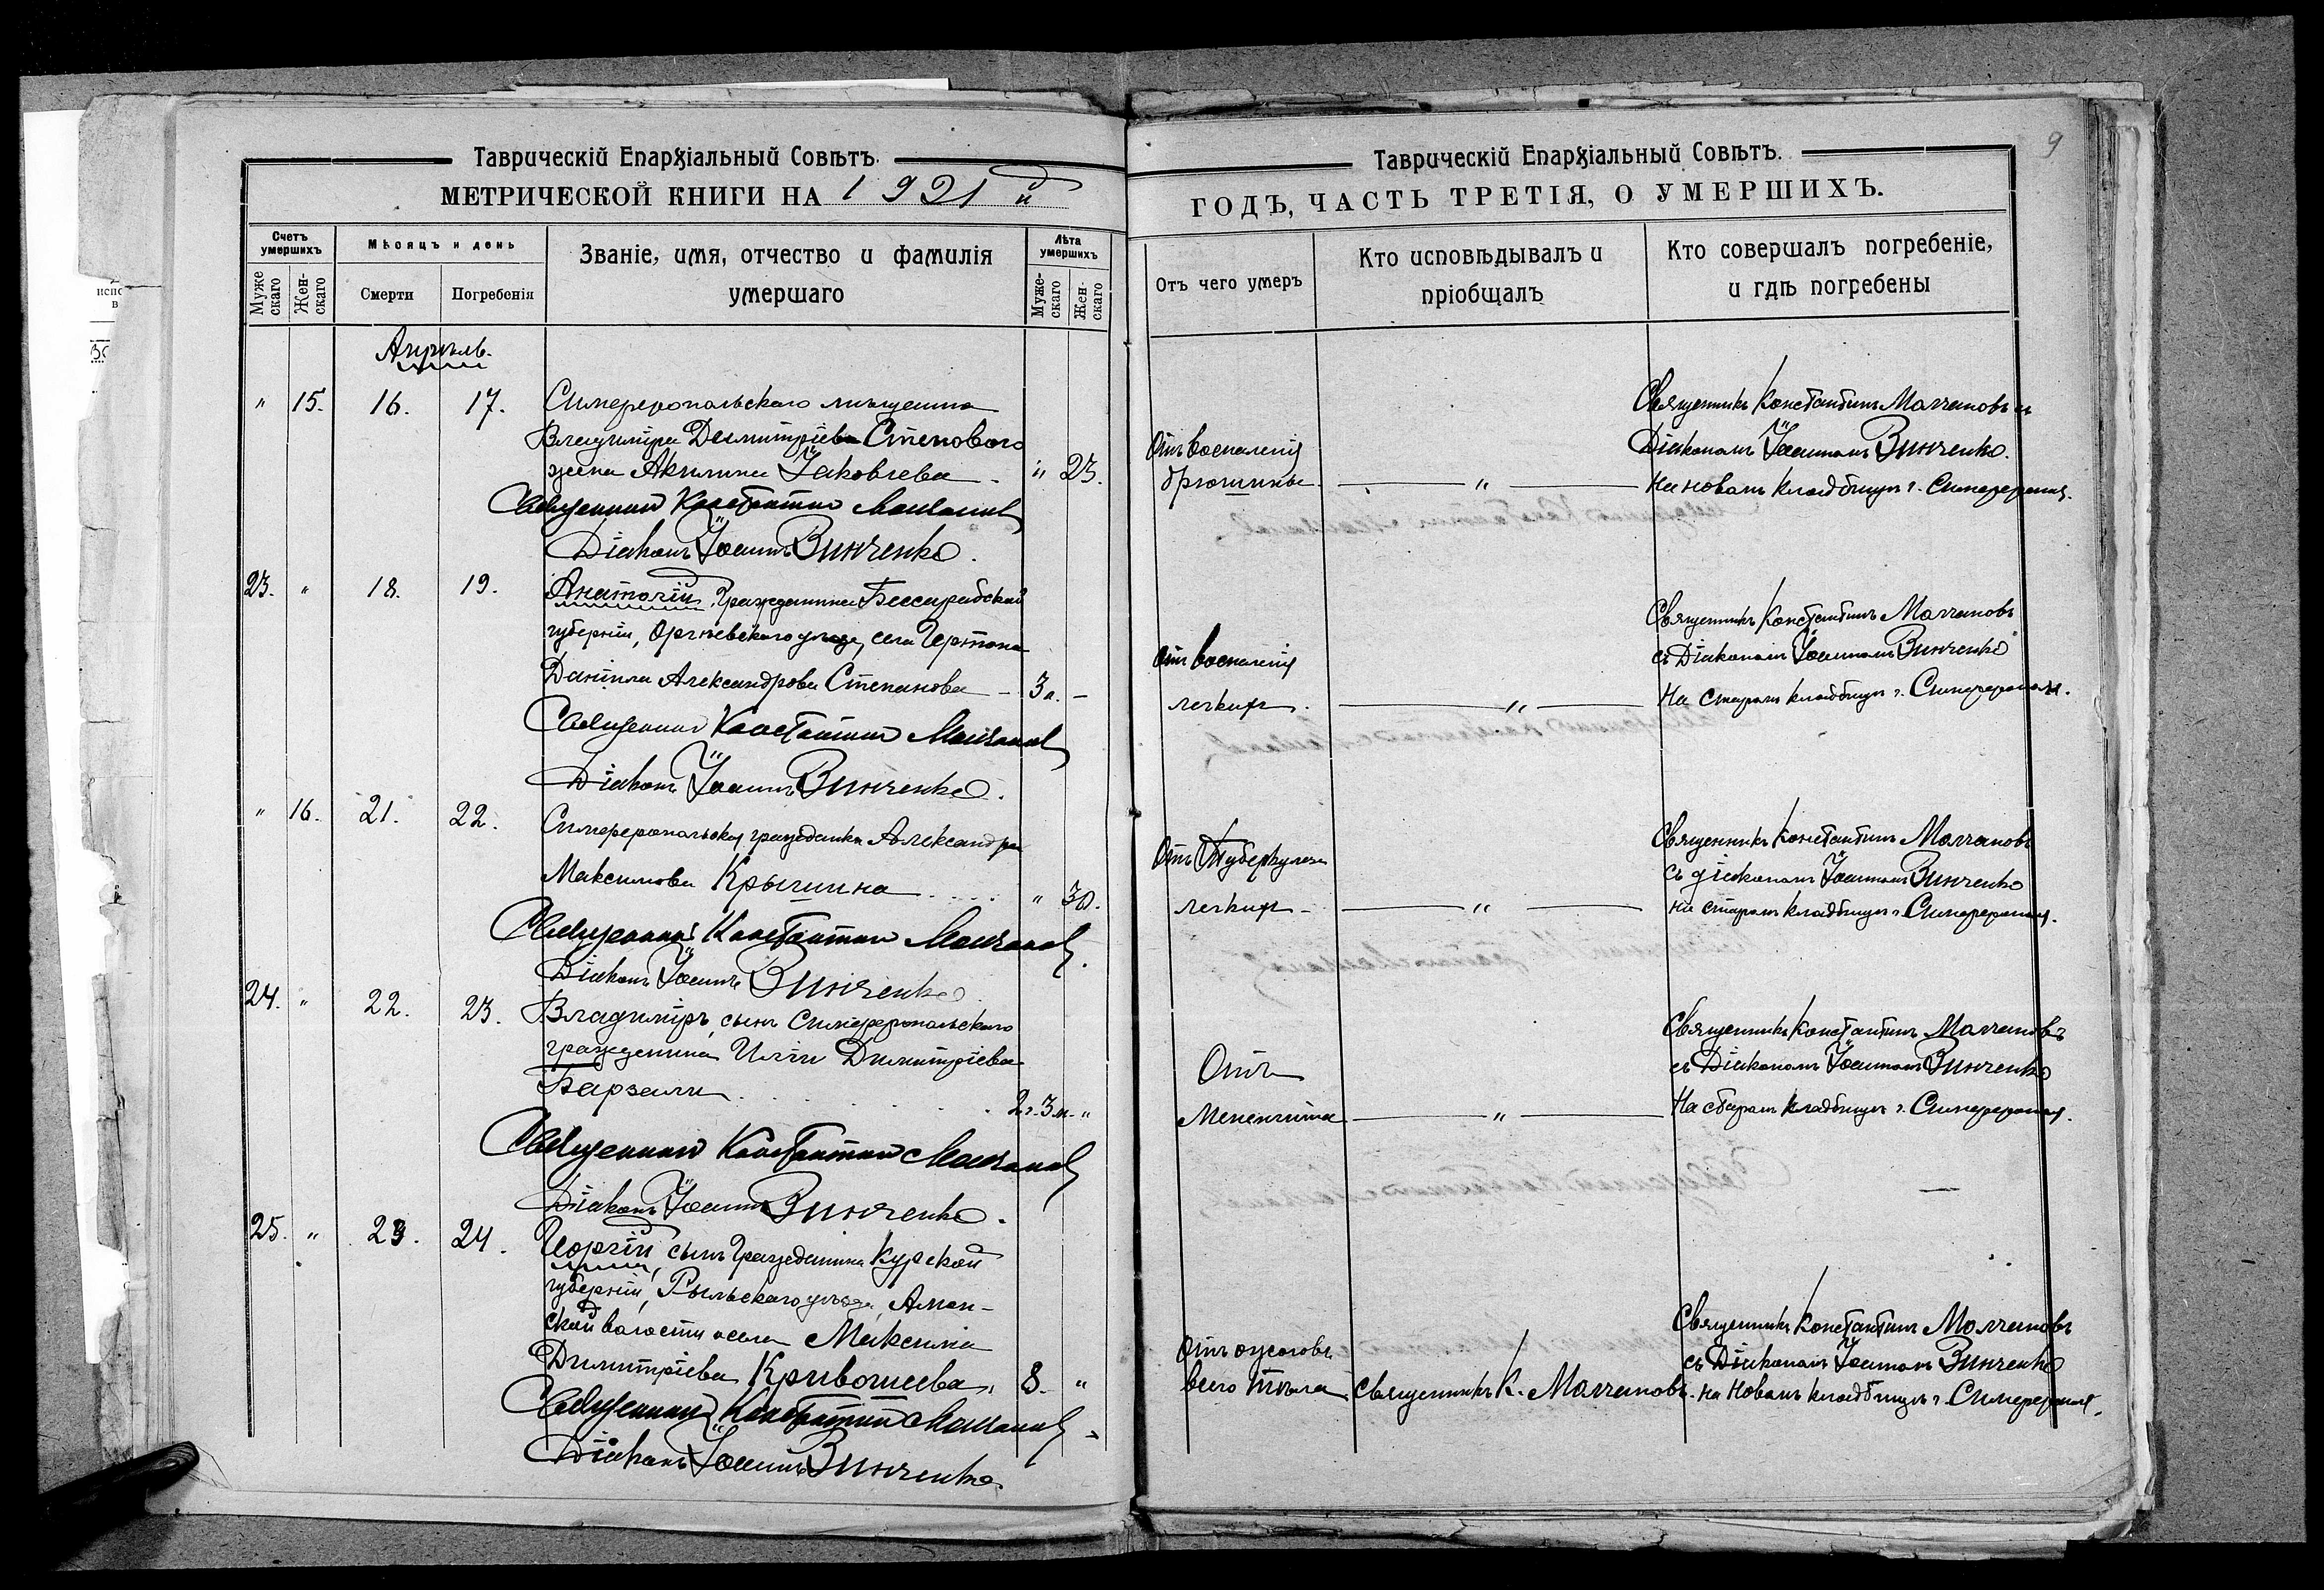 Таврическій Епархіальный Совѣтъ.
МЕТРИЧЕСКОЙ КНИГИ НА 1921й
Счетъ умершихъ
Мѣсяцъ и день
Званіе, имя, отчество и фамилія умершаго
Лѣта умершихъ
Мужескаго
Женскаго
Смерти
Погребенія
Мужескаго
Женскаго
Апрѣль.
" 15. 16. 17. Симферопольскаго мѣщанина
Владиміра Димитріева Степового
жена Акилина Іаковлева - " 23.
Священникъ Константинъ Молчановъ
Діаконъ Іоаннъ Винченко.
23. " 18. 19. Анатолій, гражданина Бессарабской
губерніи, Оргѣевскаго уѣзда, села
Даніила Александрова Степанова - 3 -
Священникъ Константинъ Молчановъ
Діаконъ Іоаннъ Винченко.
" 16. 21. 22. Симферопольская гражданка Александра
Максимова Крыгина . . . . " 30.
Священникъ Константинъ Молчановъ
Діаконъ Іоаннъ Винченко.
24. " 22. 23. Владиміръ, сынъ Симферопольскаго
гражданина Иліи Димитріева
Барзали . . . . 2г. 3м. "
Священникъ Константинъ Молчановъ
Діаконъ Іоаннъ Винченко.
25. " 23. 24. Георгій, сынъ гражданина Курской
губерніи, Рыльскаго уѣзда, Амон-
ской волости и села Максима
Димитріева Кривошеева " 8. "
Священникъ Константинъ Молчановъ
Діаконъ Іоаннъ Винченко.
9
Таврическій Епархіальный Совѣтъ.
ГОДЪ, ЧАСТЬ ТРЕТІЯ, О УМЕРШИХЪ.
Отъ чего умеръ
Кто исповѣдывалъ и пріобщалъ
Кто совершалъ погребеніе, и гдѣ погребены
Священникъ Константинъ Молчановъ и
Отъ воспаленія Діаконъ Іоаннъ Винченко.
брюшины. " На новомъ кладбищѣ г. Симферополя.
Священникъ Константинъ Молчановъ
Отъ воспаленія съ Діакономъ Іоанномъ Винченко
легкихъ. " На старомъ кладбищѣ г. Симферополя.
Священникъ Константинъ Молчановъ
Отъ туберкулеза съ діакономъ Іоанномъ Винченко
легкихъ - " на старомъ кладбищѣ г. Симферополя.
Священникъ Константинъ Молчановъ
Отъ съ Діакономъ Іоанномъ Винченко
Менингита " На старомъ кладбищѣ г. Симферополя.
Священникъ Константинъ Молчановъ
Отъ ожоговъ съ Діакономъ Іоанномъ Винченко
всего тѣла Священникъ К. Молчановъ. на новомъ кладбищѣ г. Симферополя.